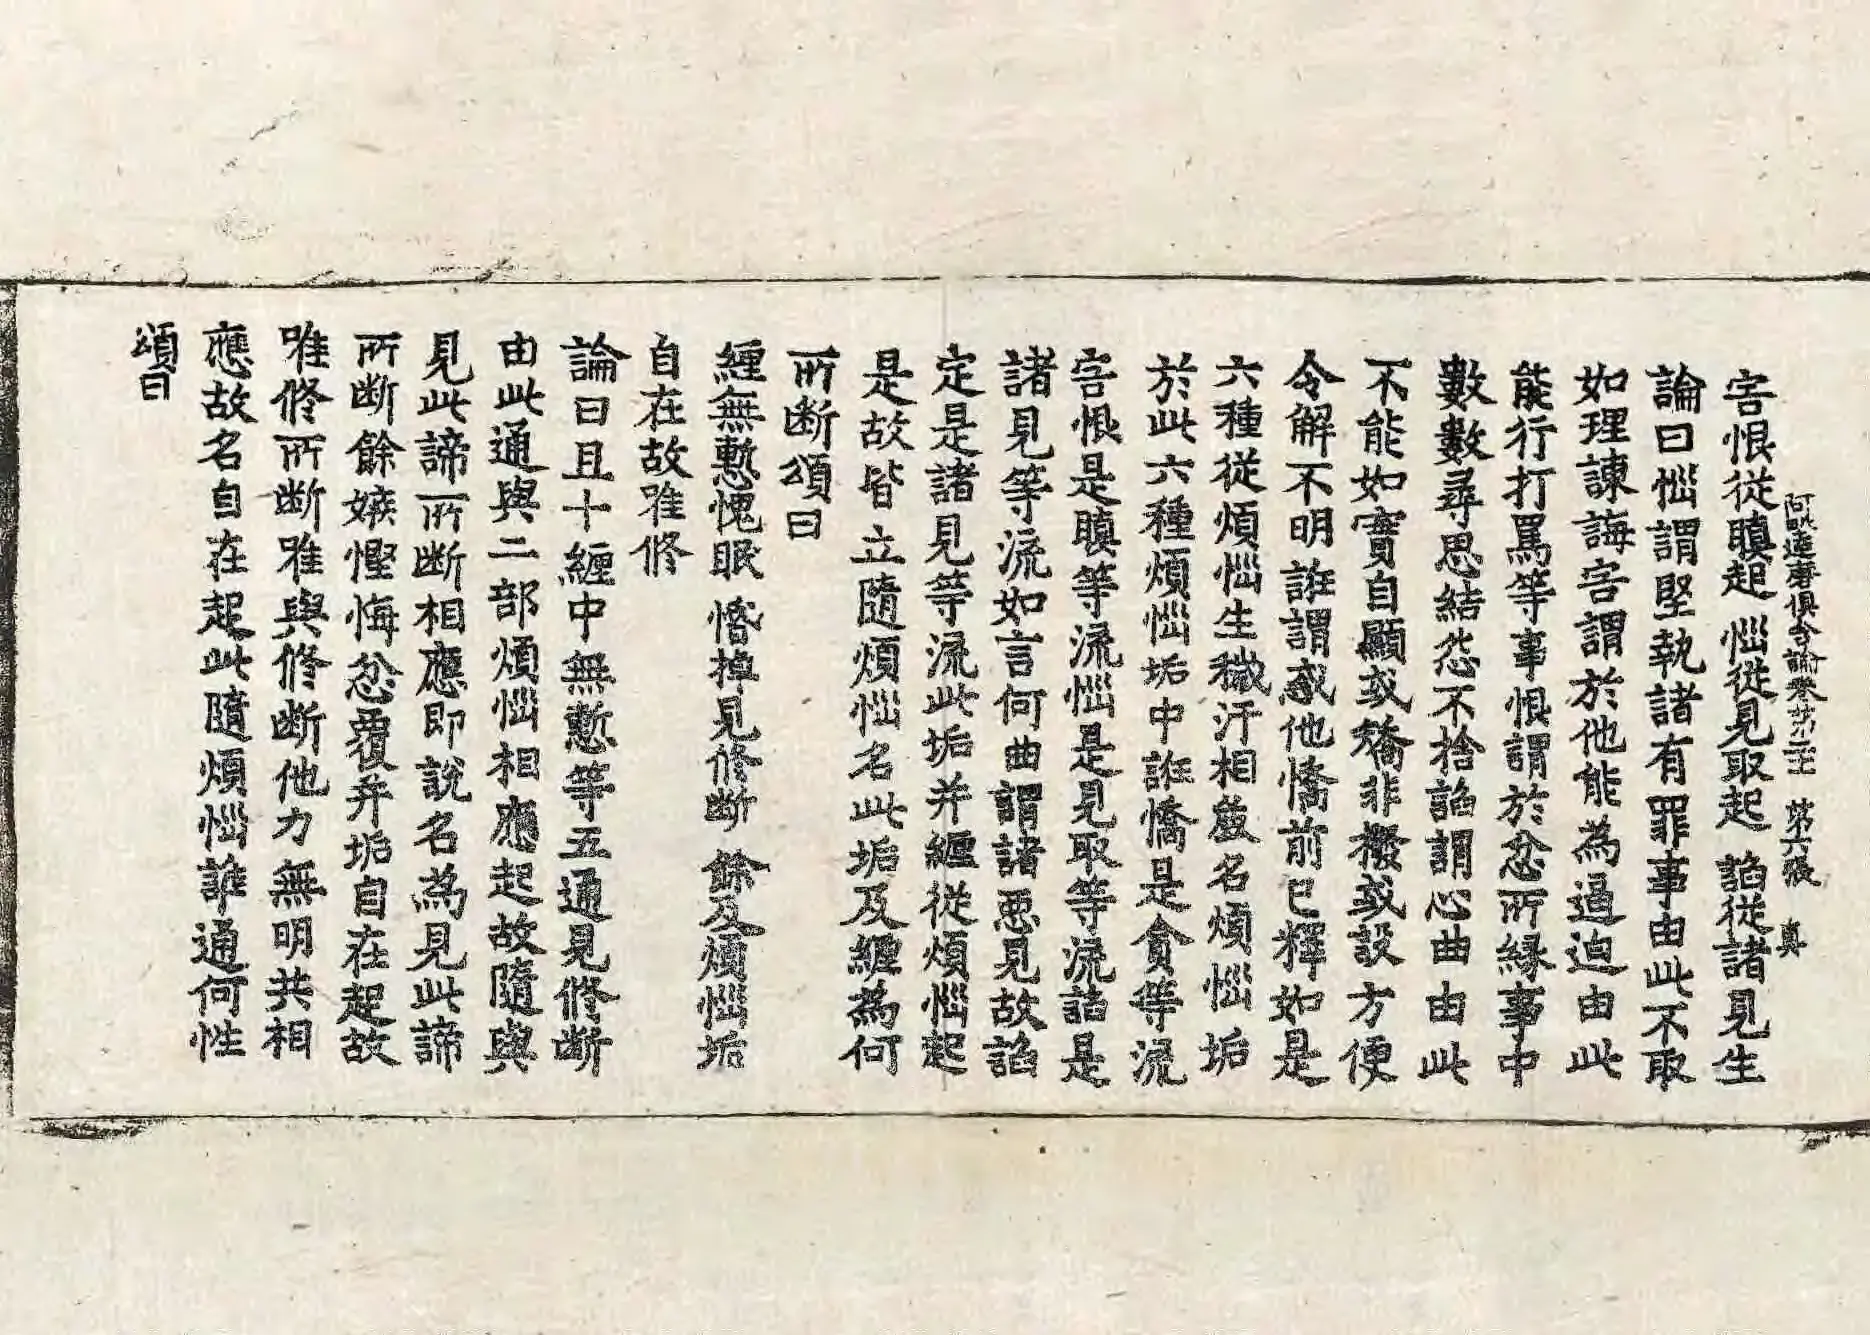 阿毗達磨俱舍論卷第二十一 第六張 真
害恨從瞋起 惱從見取起 諂從諸見生
論曰惱謂堅執諸有罪事由此不取
如理諫誨害謂於他能為逼迫由此
能行打罵等事恨謂於忿所緣事中
數數尋思結怨不捨諂謂心曲由此
不能如實自顯或矯非撥或設方便
令解不明誑謂惑他憍前已釋如是
六種從煩惱生穢污相麁名煩惱垢
於此六種煩惱垢中誑憍是貪等流
害恨是瞋等流惱是見取等流諂是
諸見等流如言何曲謂諸惡見故諂
定是諸見等流此垢并纏從煩惱起
是故皆立隨煩惱名此垢及纏為何
所斷頌曰
纏無慙愧眠 惛掉見修斷 餘及煩惱垢
自在故唯修
論曰且十纏中無慙等五通見修斷
由此通與二部煩惱相應起故隨與
見此諦所斷相應即說名為見此諦
所斷餘嫉慳悔忿覆并垢自在起故
唯修所斷唯與修斷他力無明共相
應故名自在起此隨煩惱誰通何性
頌曰